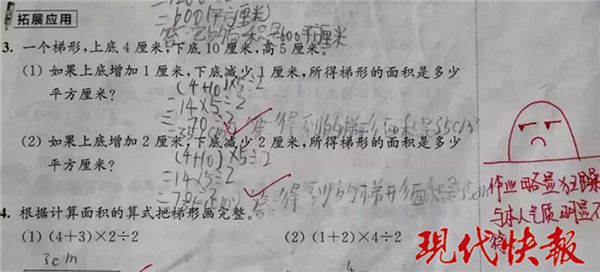 =600(平方厘米)
拓展应用
3. 一个梯形,上底 4 厘米,下底 10 厘米,高 5 厘米。
(1) 如果上底增加 1 厘米,下底减少 1 厘米,所得梯形的面积是多少
平方厘米?
(4+10)×5÷2
=14×5÷2
=70÷2
答:得到的梯形面积是35cm²
(2) 如果上底增加 2 厘米,下底减少 2 厘米,所得梯形的面积是多少
平方厘米?
(4+10)×5÷2
=14×5÷2
答:得到的梯形面积是
4. 根据计算面积的算式把梯形画完整。
(1) (4+3)×2÷2
(2) (1+2)×4÷2
3cm
作业略显狂躁
与本人气质明显不
现代快报